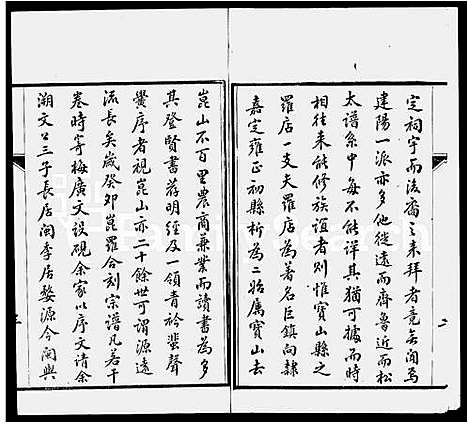 定祠宇而法裔之来拜者竟無閩焉
建陽一派亦多他徙遠而齊魯近而松
太譜系中每不能詳其猶可據而時
相往来能修族誼者則惟寶山縣之
羅店一支夫羅店為著名巨鎮向隸
嘉定雍正初縣析為二始屬寶山去
崑山不百里農商兼業而讀書為多
其登賢書荐明經及一領青衿蜚聲
黌序者視崑山亦二十餘世可謂源遠
流長矣歲癸卯崑羅合刻宗譜凡若干
卷時寄梅廣文設硯余家以序文請余
溯文公三子長居閩季居婺源今閩與
二
FamilySearch